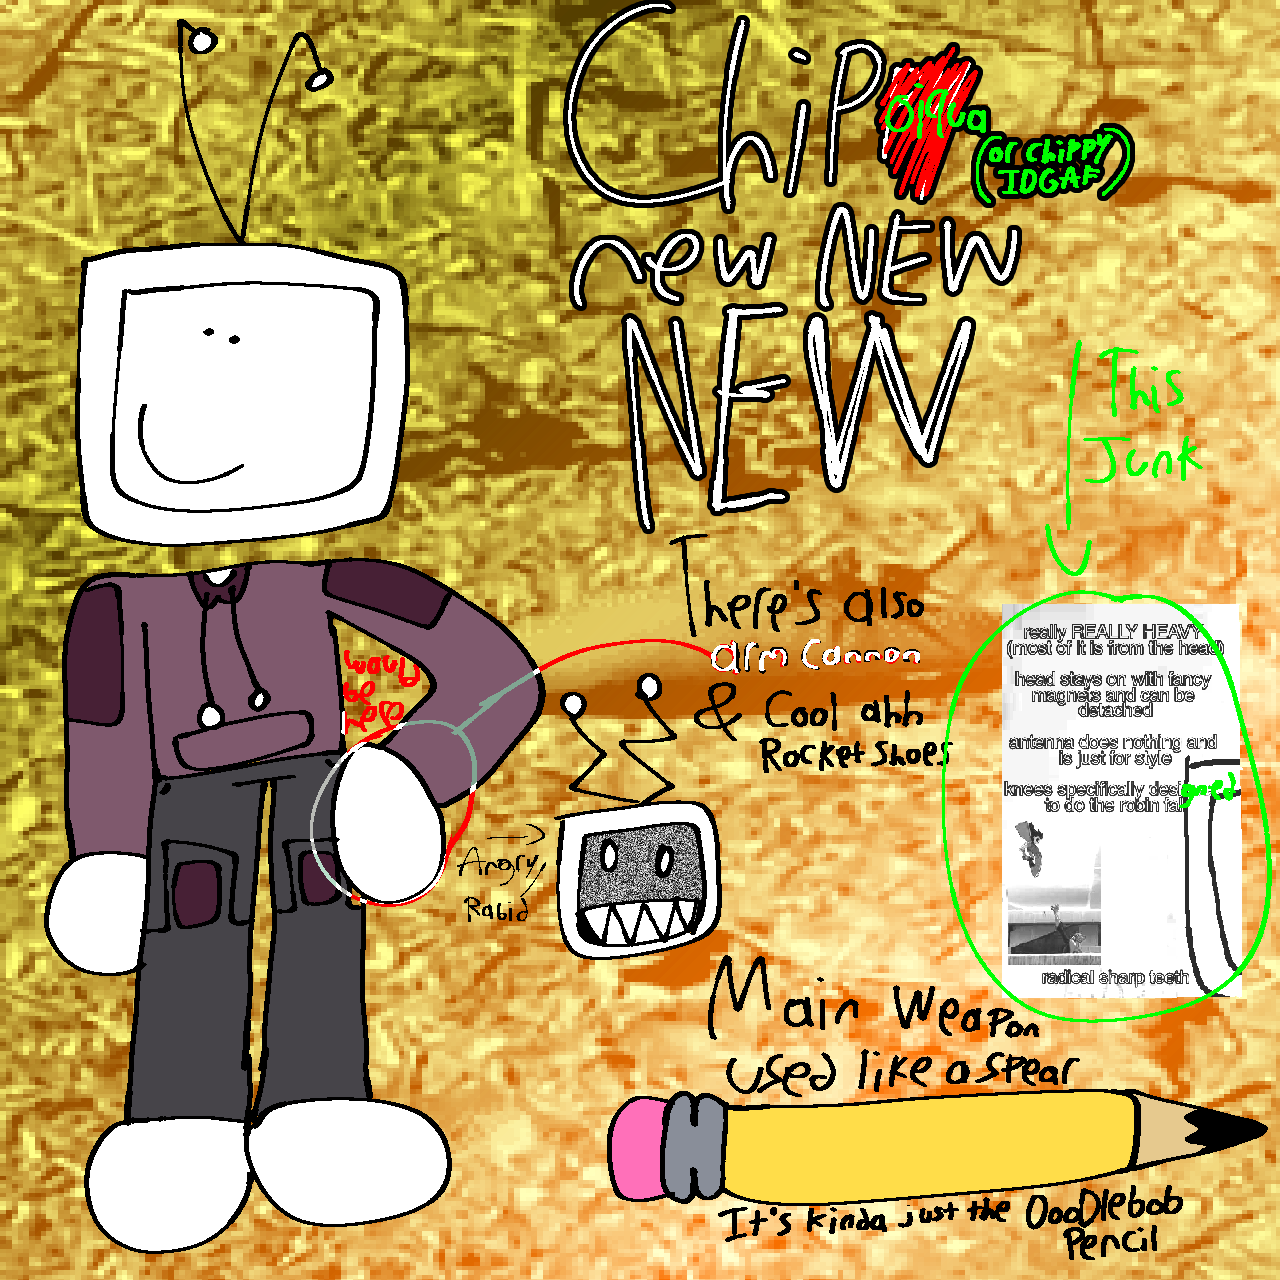 Chip
oiqua
(or chippy
IDGAF)
new NEW
NEW
This
Junk
There's also
arm cannon
& Cool ahh
Rocket Shoes
would
be
on
really REALLY HEAVY
(most of it is from the head)
head stays on with fancy
magnets and can be
detached
antenna does nothing and
is just for style
knees specifically designed
to do the robin fall
radical sharp teeth
Angry/
Rabid
Main Weapon
used like a spear
It's kinda just the DooDlebob
Pencil